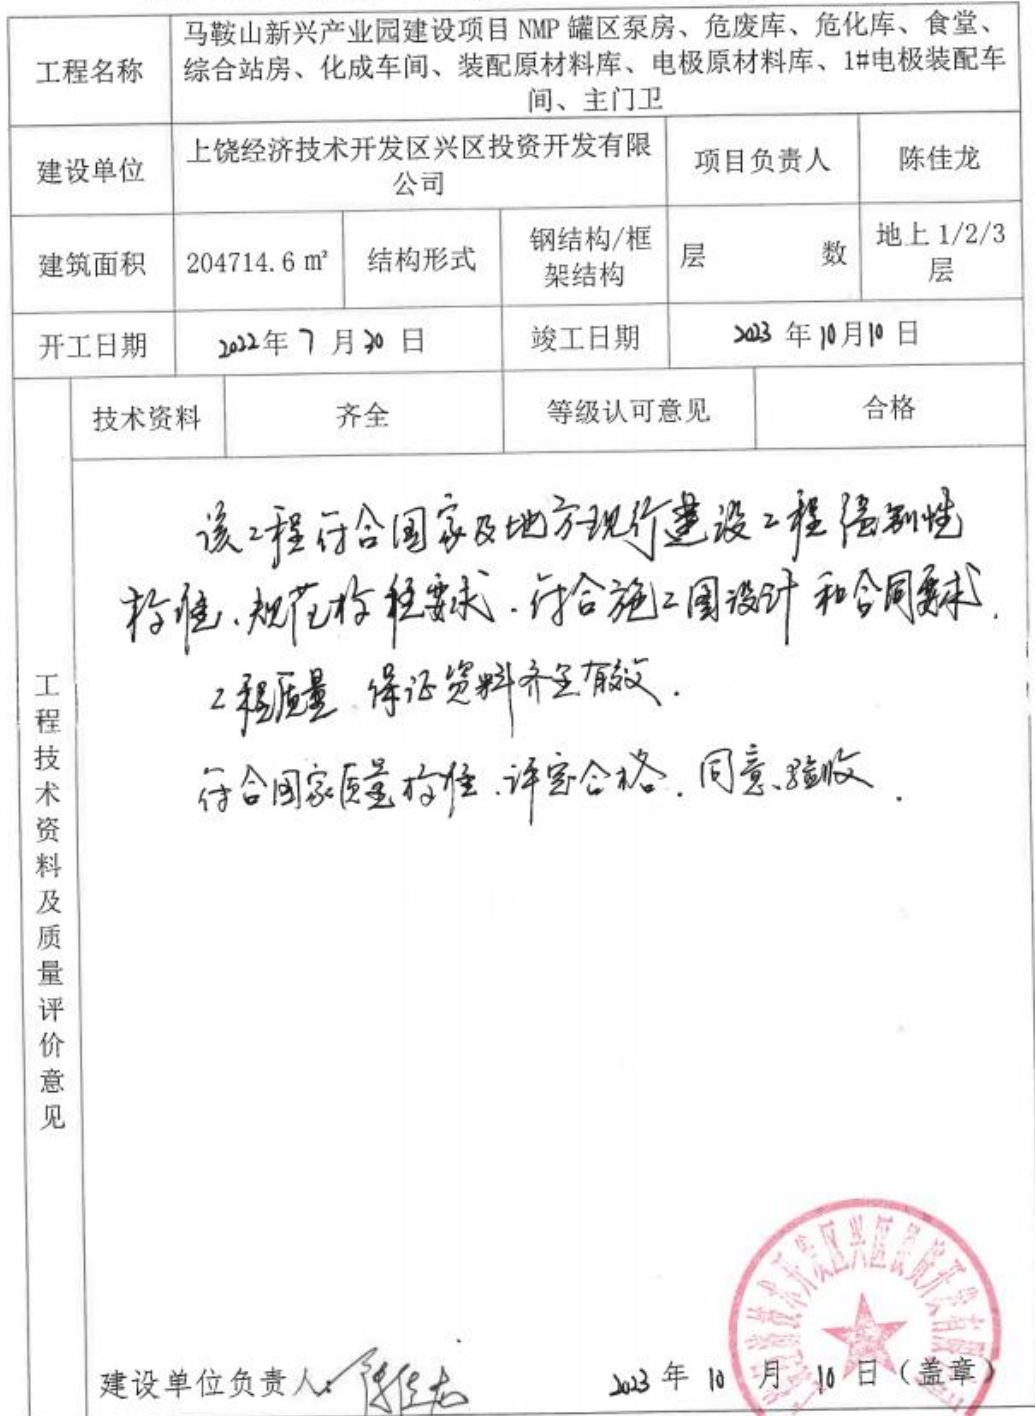 工程名称
马鞍山新兴产业园建设项目 NMP 罐区泵房、危废库、危化库、食堂、
综合站房、化成车间、装配原材料库、电极原材料库、1#电极装配车
间、主门卫
建设单位
上饶经济技术开发区兴区投资开发有限
公司
项目负责人
陈佳龙
建筑面积
204714.6 ㎡
结构形式
钢结构/框
架结构
层 数
地上 1/2/3
层
开工日期
2022年 7 月 30 日
竣工日期
2023 年 10月10 日
技术资料
齐全
等级认可意见
合格
工程技术资料及质量评价意见
该工程符合国家及地方现行建设工程强制性
标准、规范标准要求.符合施工图设计和合同要求.
工程质量 保证资料齐全有效.
符合国家质量标准.评定合格.同意验收.
建设单位负责人: 陈佳龙
2023 年 10 月 10 日（盖章）
技术开发区兴区投资开发有限